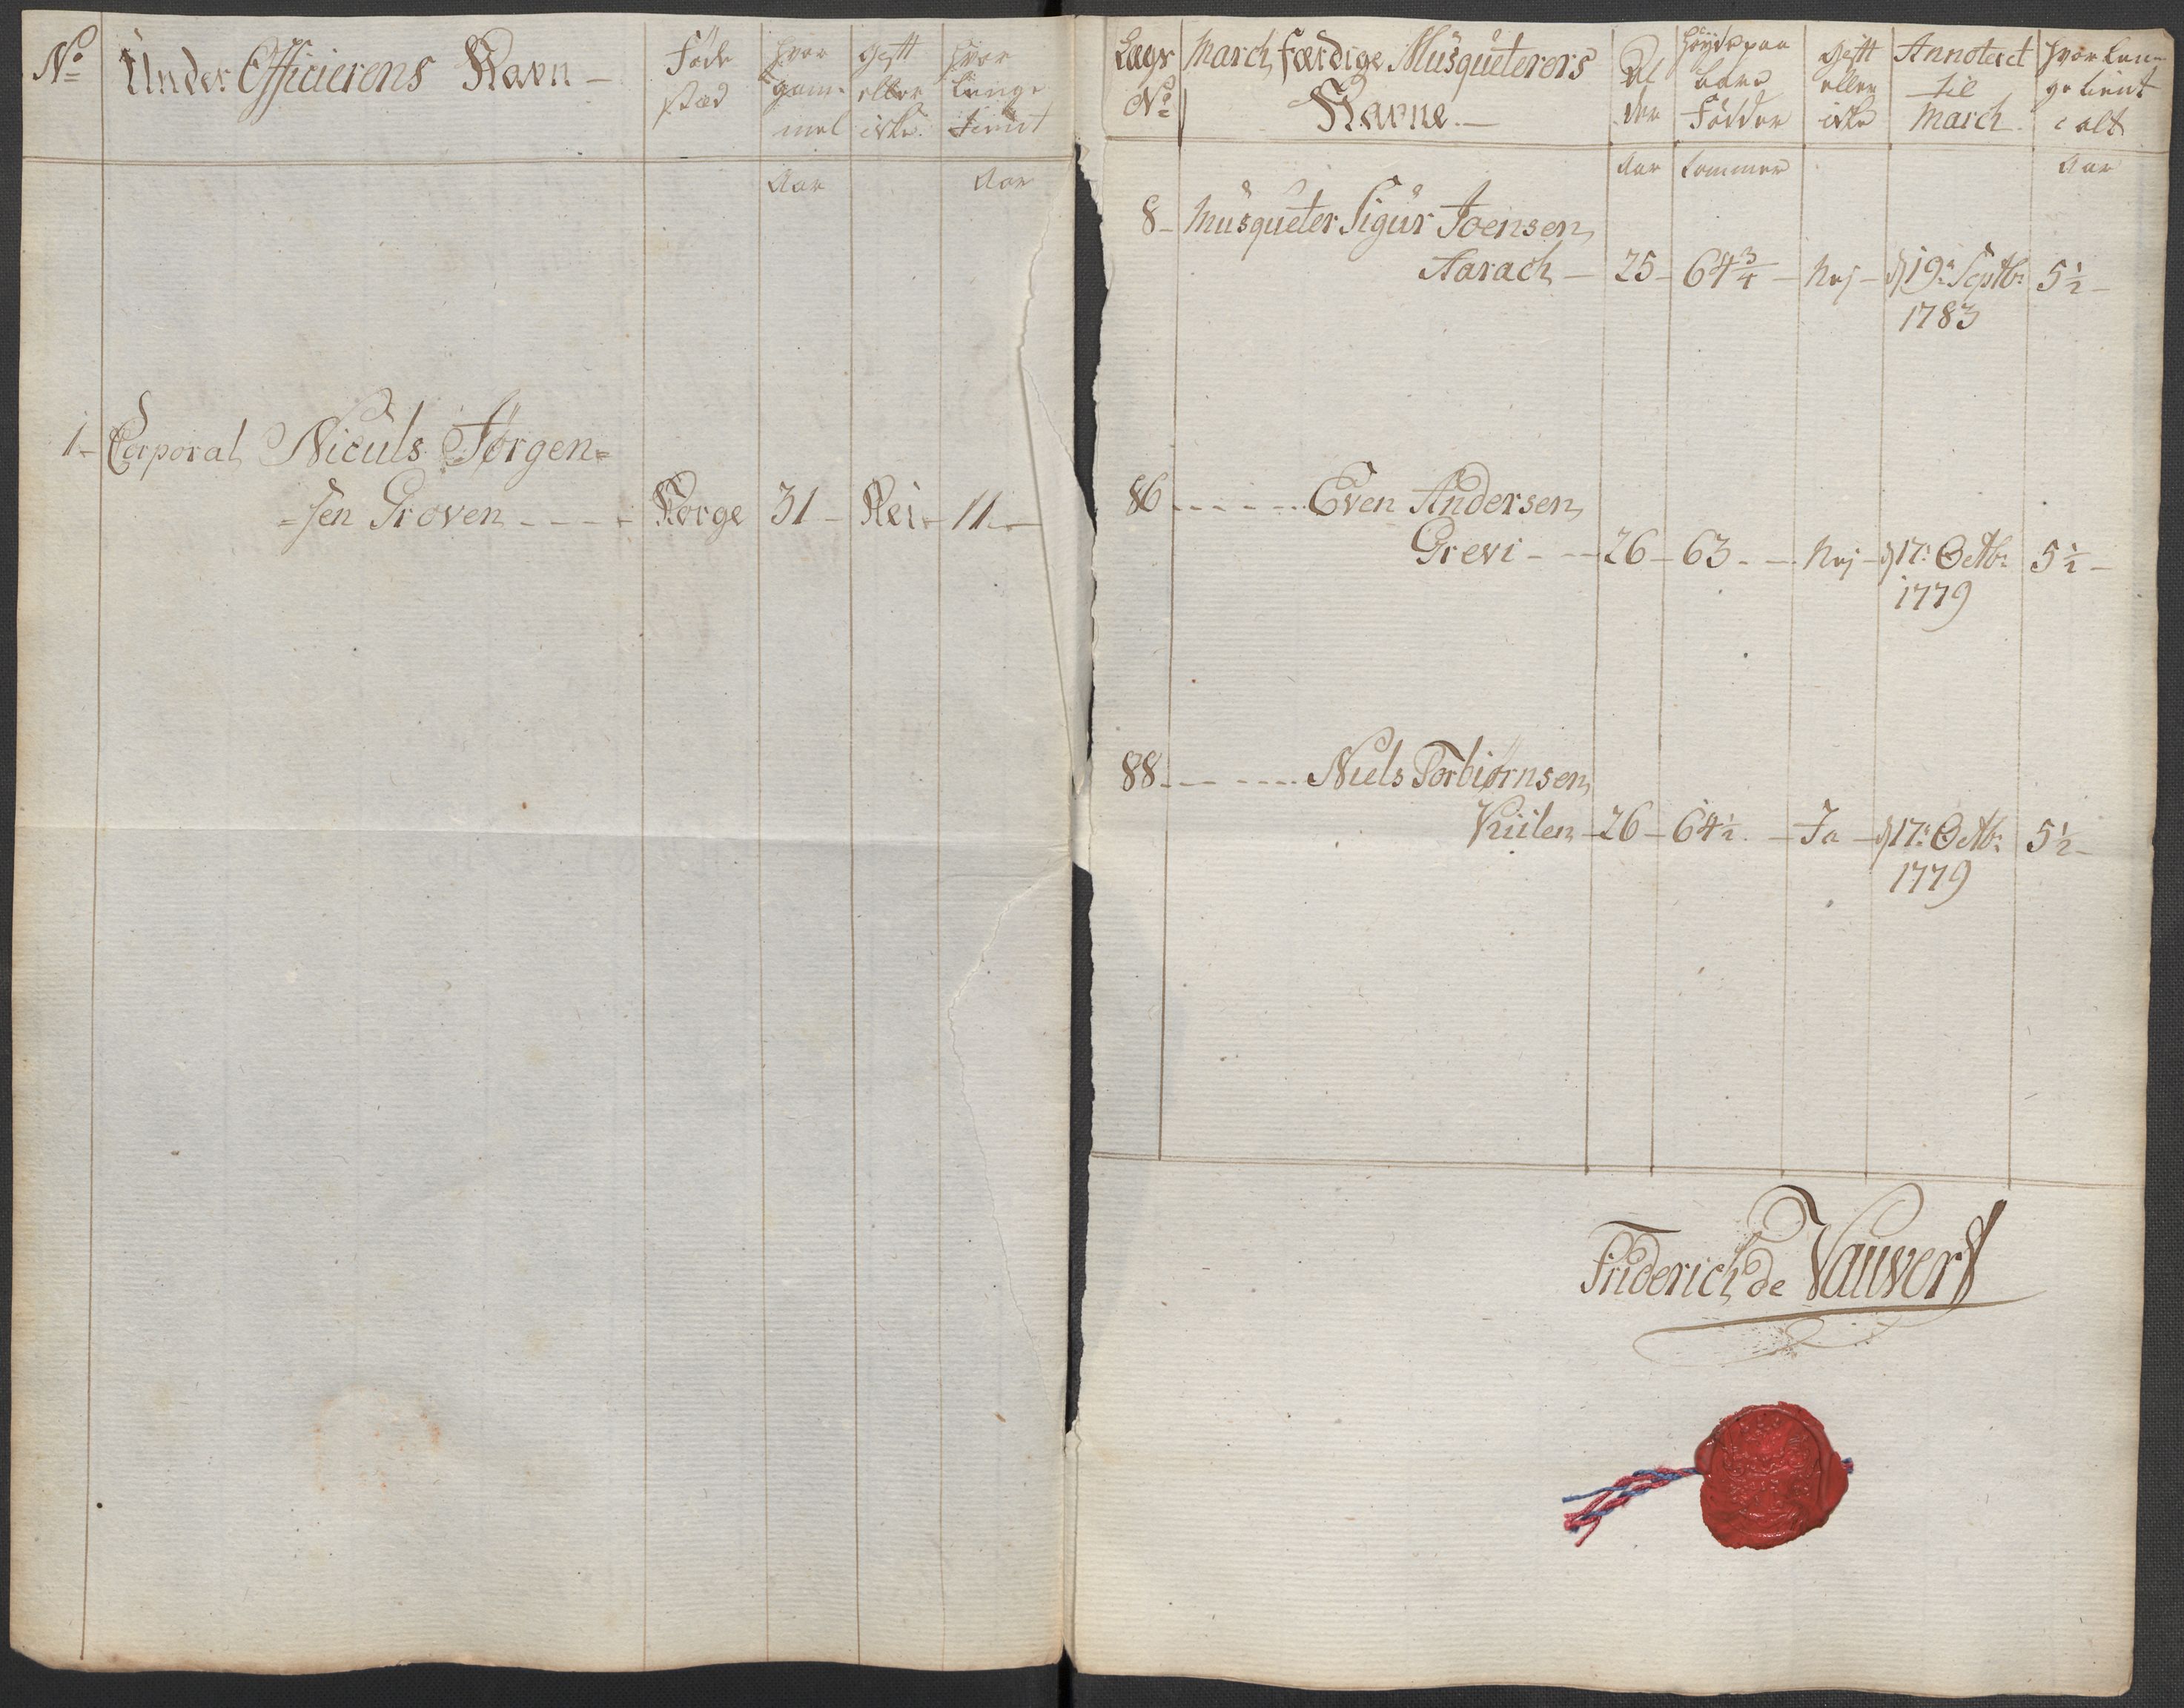 No
Under Officierens Navn —
Føde
stæd
hvor
gam-
mel
gift
eller
icke.
hvor
længe
tient
Aar
Aar
1 - Corporal Niculs Jørgen=
=sen Groven - - - - Norge 31 - Nei - 11 -
Lægs
No
March færdige Musqueterers
Navne. —
Al
der
Høyde paa
bare
Fødder
gift
eller
icke
Annoteret
til
March.
hvor læn-
ge tient
i alt
Aar
Tommer
Aar
8 - Musqueter Sigur Joensen
Aarach — 25 - 64 3/4 - Nej - d 19: Septbr: 5 1/2 -
1783
86 - - - - - Even Andersen
Grevi - - - 26 - 63 - - Nej - d 17: Octbr: 5 1/2 -
1779
88 - - - - - Niels Torbiørnsen
Kiilen - 26 - 64 1/2 - Ja - d 17: Octbr: 5 1/2 -
1779
Friderich de Vauvert